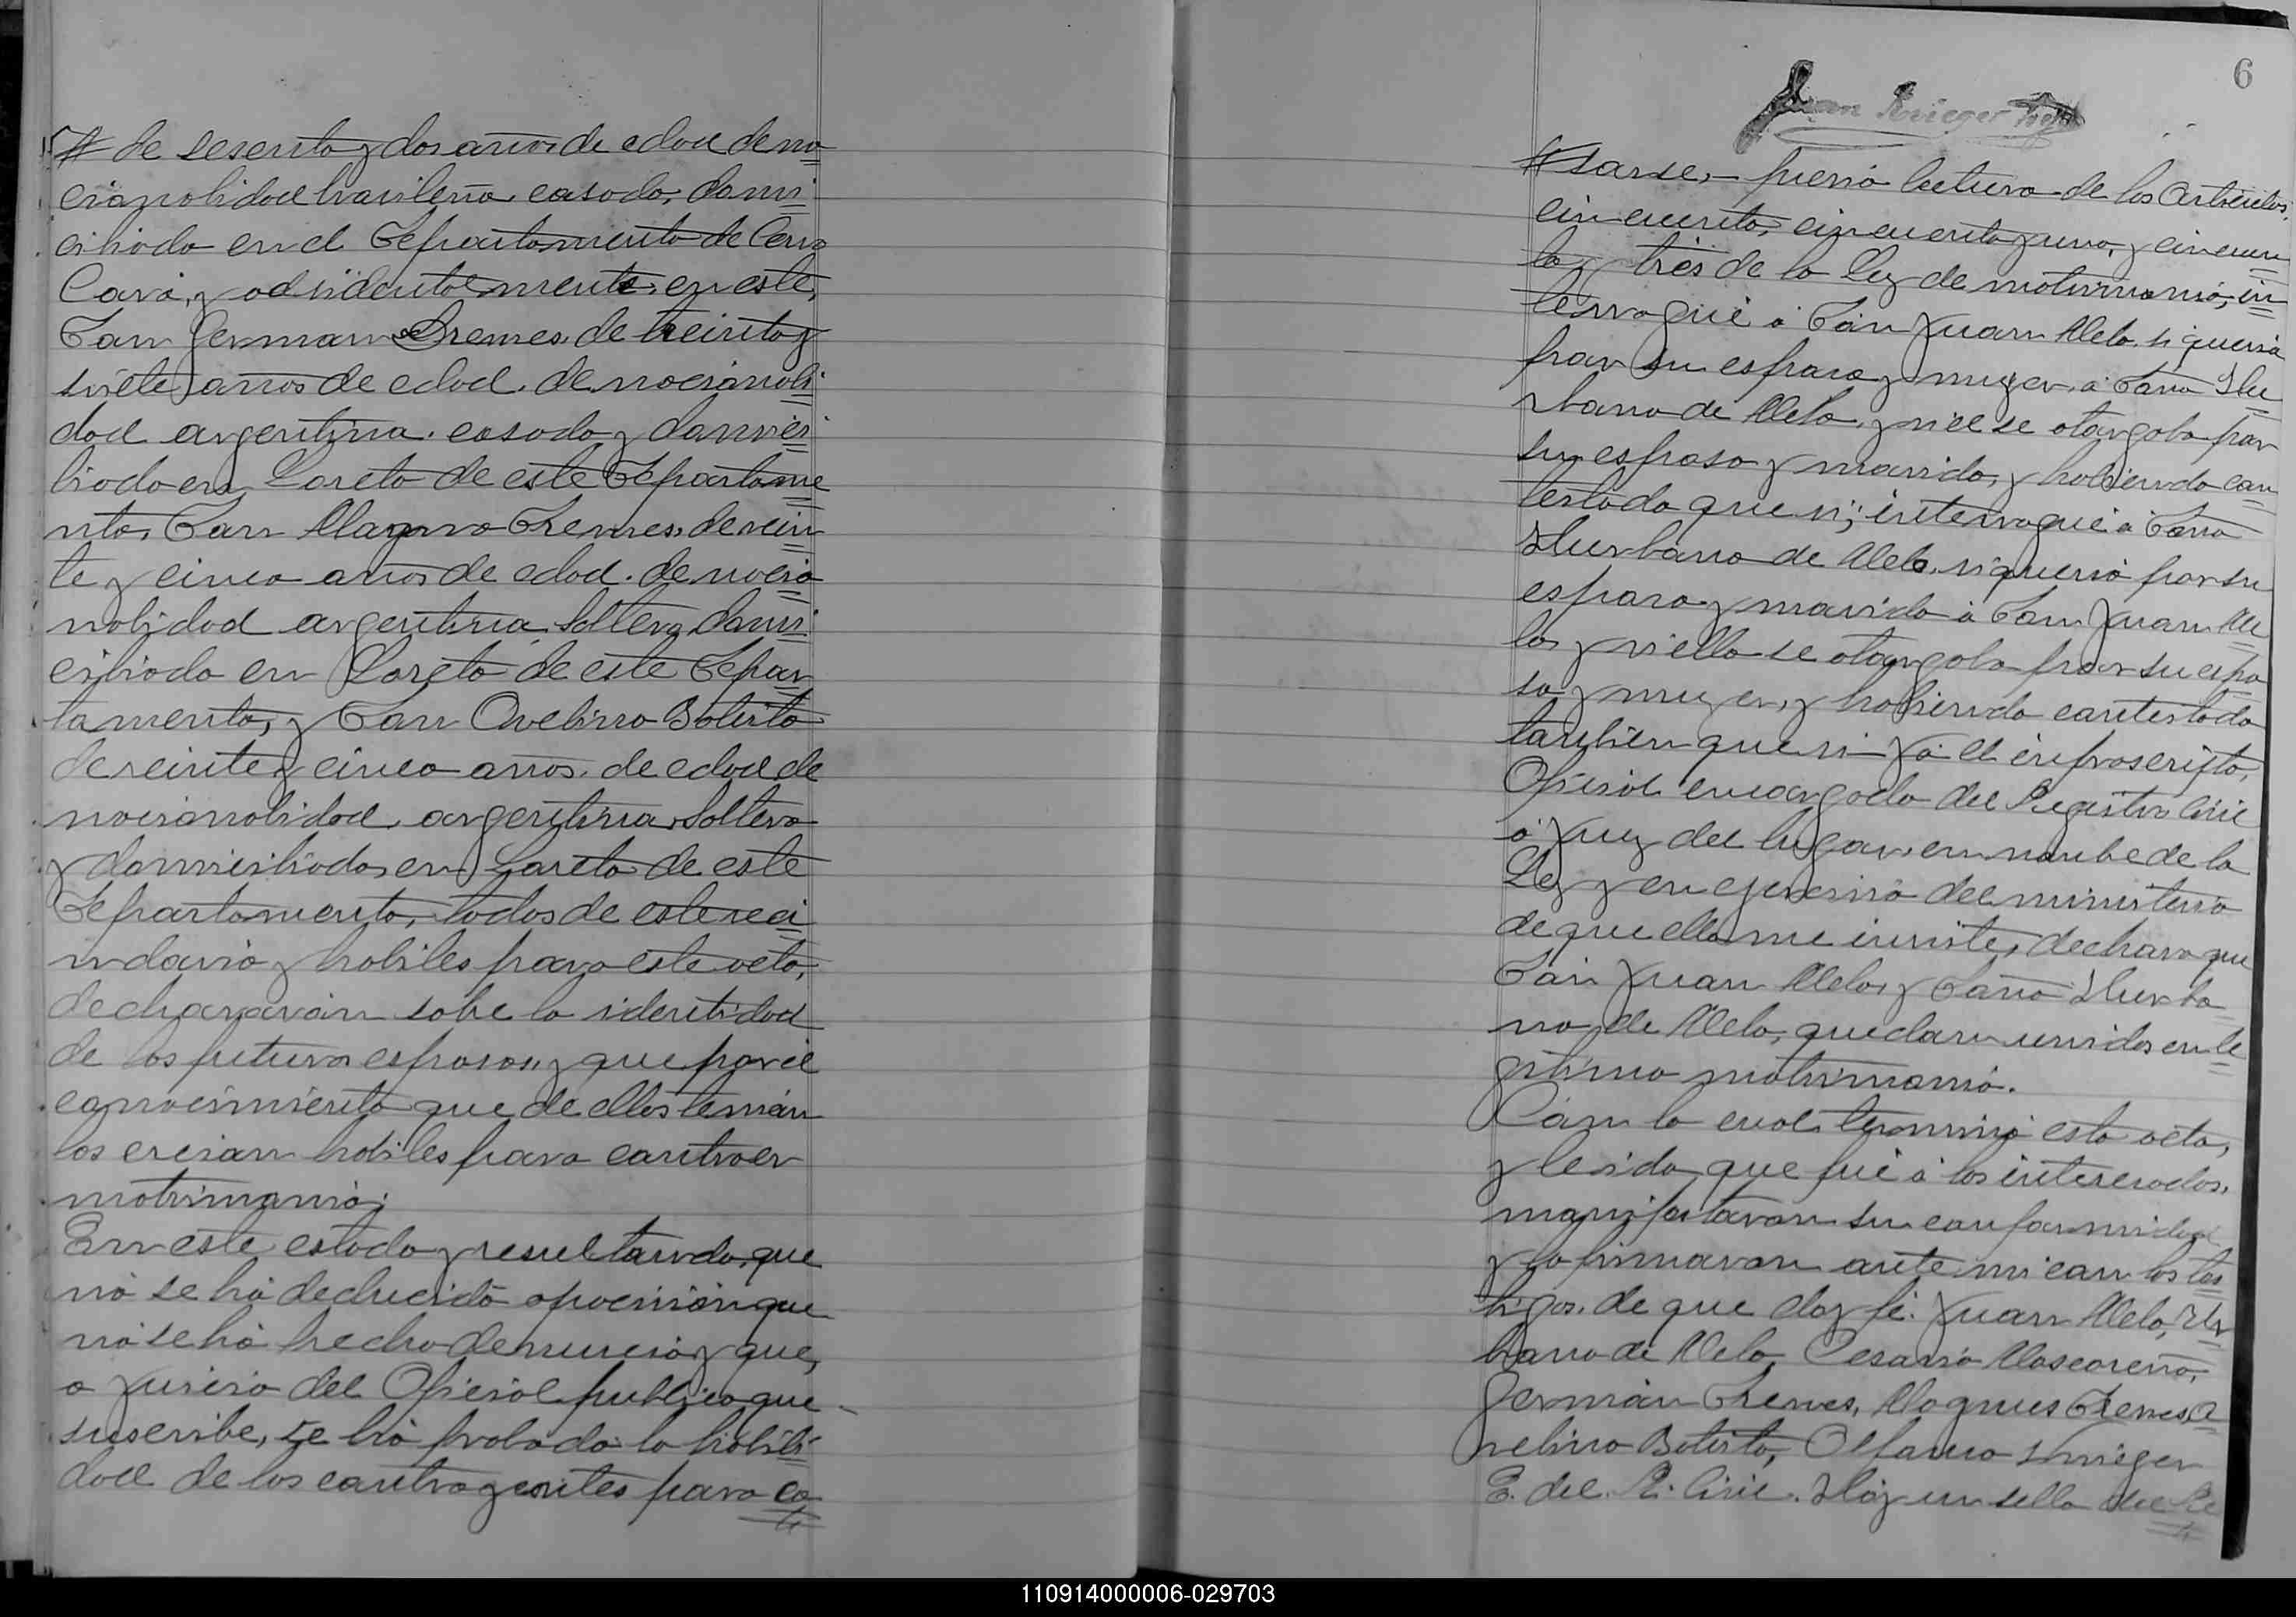 # de sesenta y dos años de edad de na
cionalidad brasileña, casado, domi
ciliado en el Departamento de Cerro
Corá, y adsidentalmente en este,
Don German Dremes, de treinta y
siete años de edad, de nacionali
dad argentina, casado y domici
liado en Loreto de este Departame
nto, Don Magno Dremes, de vein
te y cinco años de edad, de nacio
nalidad argentina, soltero, domi
ciliado en Loreto de este Depar
tamento, y Don Avelino Batista
de veinte y cinco años, de edad de
nacionalidad, argentina, soltero
y domiciliado, en Loreto de este
Departamento, todos de este veci
ndario y habiles para este acto,
declararán sobre la identidad
de los futuros esposos, y que por el
conocimiento que de ellos tenian
los creian habiles para contraer
matrimonio;
En este estado y resultando, que
no se há deducido oposición que
no se há hecho denuncia y que,
a juicio del Oficial publico que
suscribe, se há probado la habili
dad de los contrayentes para ca
6
Juan Krieger
# sarse, previa lectura de los Articulos,
cincuenta, cincuenta y uno, y cincuen
ta y tres de la Ley de matrimonio, in
terrogué á Don Juan Melo, si queria
por su esposa y muger, á Doña
de Melo, y si el se otorgaba por
su esposo y marido, y habiendo con
testado que si; interrogué á Doña
de Melo, si queria por su
esposo y marido á Don Juan Me
lo, y si ella se otorgaba por su espo
sa y muger, y habiendo contestado
tambien que si yo el infrascripto,
Oficial encargado del Registro Civil
ó Juez del lugar, en nombe de la
Ley y en ejercicio del ministerio
de que ella me inviste, declaro que
Don Juan Melo, y Doña
de Melo, quedan unidos en le
gitimo matrimonio.
Con lo cual terminó esta acta,
y leida que fué á los interesados,
manifestaron su conformidad
y la firmaron ante mi con los tes
tigos, de que doy fé. Juan Melo, Ur
bano de Melo, Cesario Mascareño,
Germán Dremes, Magnus Dremes, A
velino Batista, Olfano Krieger
E. del R. Civil. Hay un sello del Re
110914000006-029703